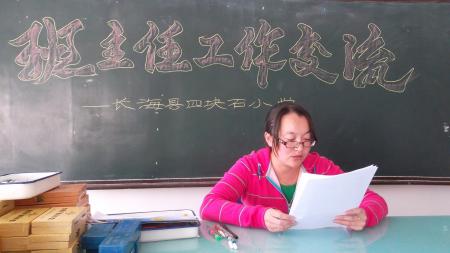 班主任工作交流
——长海县四块石小学